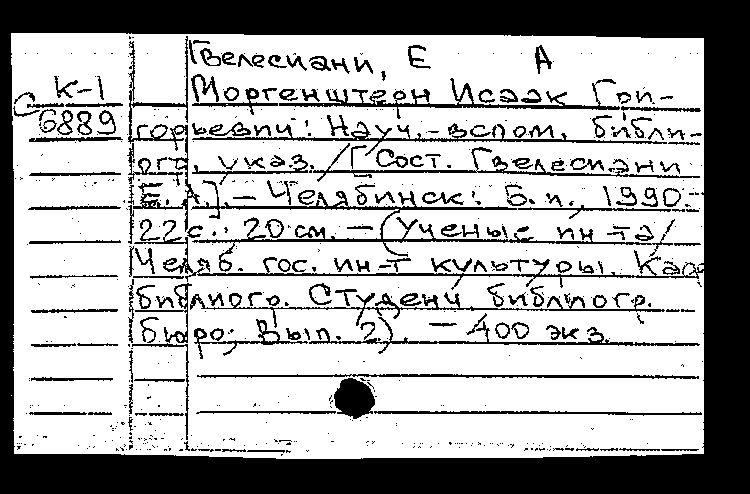 Гвелесиани, Е А
С К-1
6889
Моргенштерн Исаак Гри-
горьевич: Науч.-вспом. библи-
огр. указ. / [Сост. Гвелесиани
Е. А.]. – Челябинск: Б. и., 1990. –
22 с.: 20 см. – (Ученые ин-та /
Челяб. гос. ин-т культуры. Каф
библиогр. Студенч. библиогр.
бюро; Вып. 2). – 400 экз.